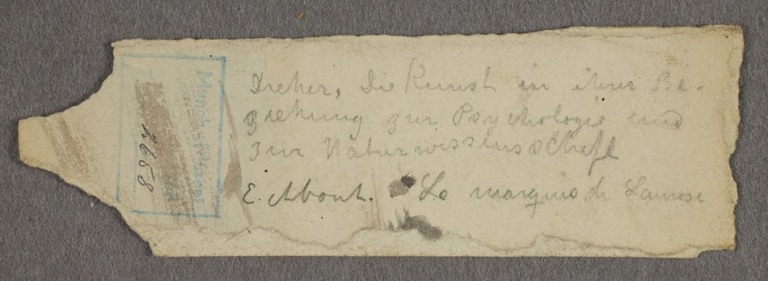 Dreher, Die Kunst in ihrer Be-
ziehung zur Psychologie und
zur Naturwissenschaft
E. About. Le marquis de Lanrose
Munch-museet